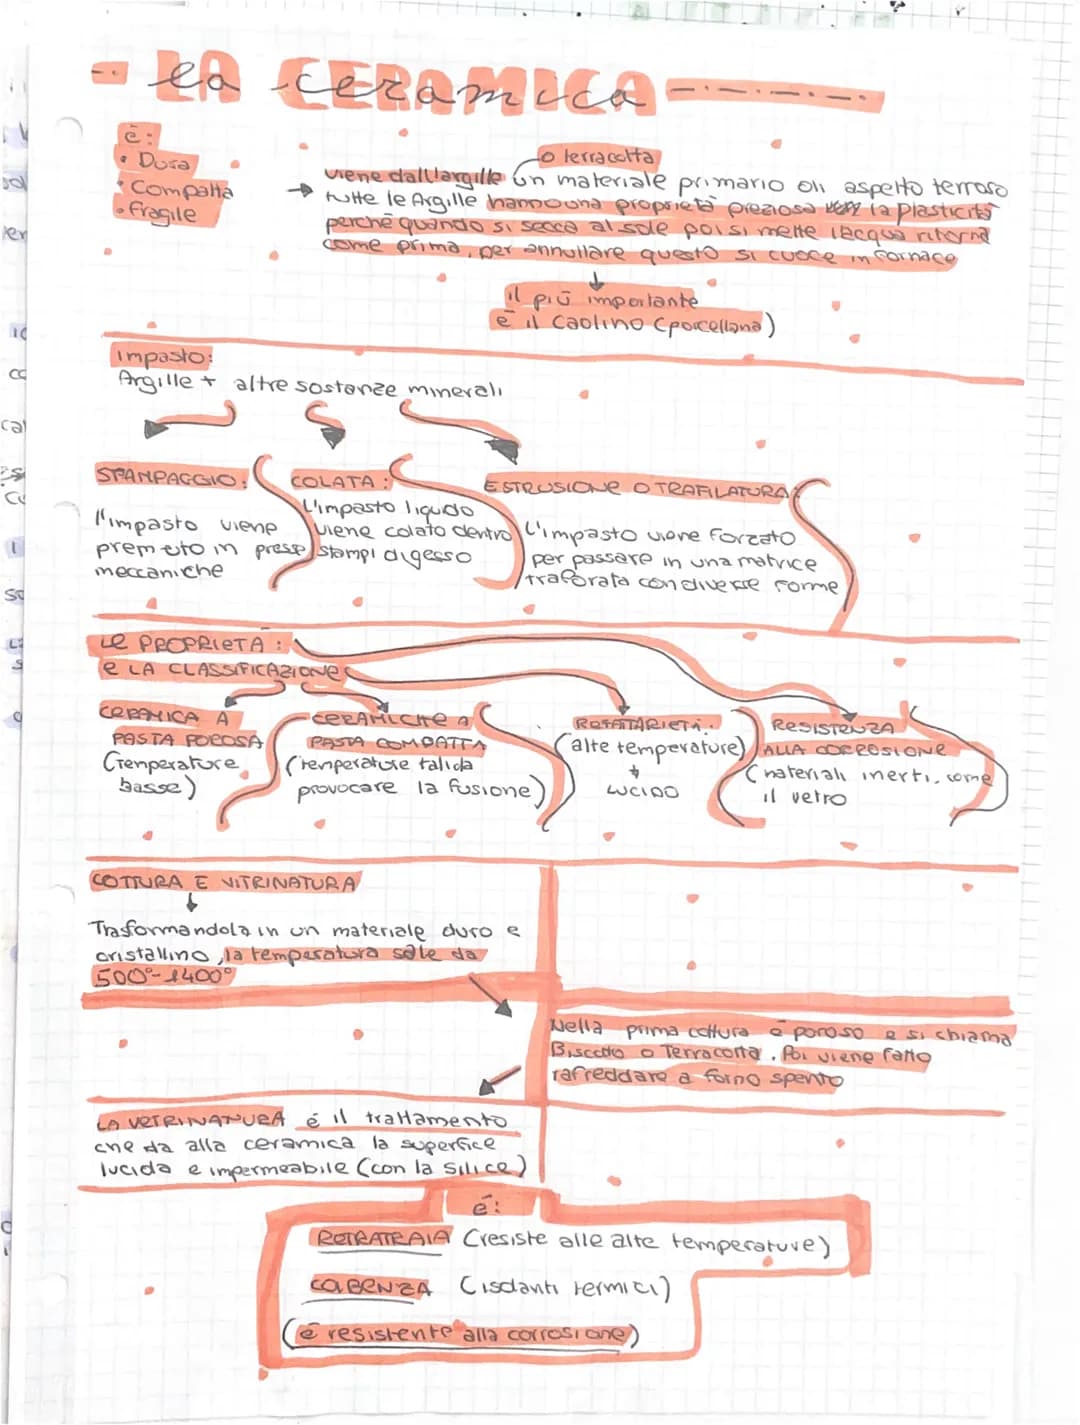 LA CERAMICA
la ceramica
è:
• Dura
• Compatta
• Fragile
o terracotta
viene dall'argille un materiale primario di aspetto terroso
tutte le Argille hanno una proprietà preziosa la plasticità
perché quando si secca al sole poi si mette l'acqua ritorna
come prima, per annullare questo si cuoce in fornace
il più importante
è il Caolino (porcellana)
impasto:
Argille + altre sostanze minerali
STAMPAGGIO:
l'impasto viene
premuto in presse
meccaniche
COLATA:
L'impasto liquido
viene colato dentro
stampi di gesso
ESTRUSIONE O TRAFILATURA:
L'impasto viene forzato
per passare in una matrice
traforata con diverse forme
LE PROPRIETÀ:
e LA CLASSIFICAZIONE
CERAMICA A
PASTA POROSA
(Temperature
basse)
CERAMICHE A
PASTA COMPATTA
(temperature tali da
provocare la fusione)
REFATARIETÀ.
(alte temperature)
LUCIDO
RESISTENZA
ALLA CORROSIONE
(materiali inerti, come
il vetro
COTTURA E VITRINATURA
Trasformandola in un materiale duro e
cristallino, la temperatura sale da
500°-1400°
Nella prima cottura è poroso e si chiama
Biscotto o Terracotta. Poi viene fatto
rafreddare a forno spento
LA VETRINATURA è il trattamento
che da alla ceramica la superfice
lucida e impermeabile (con la silice)
é:
RETRATRAIA (resiste alle alte temperature)
COBENZA (isolanti termici)
(é resistente alla corrosione)